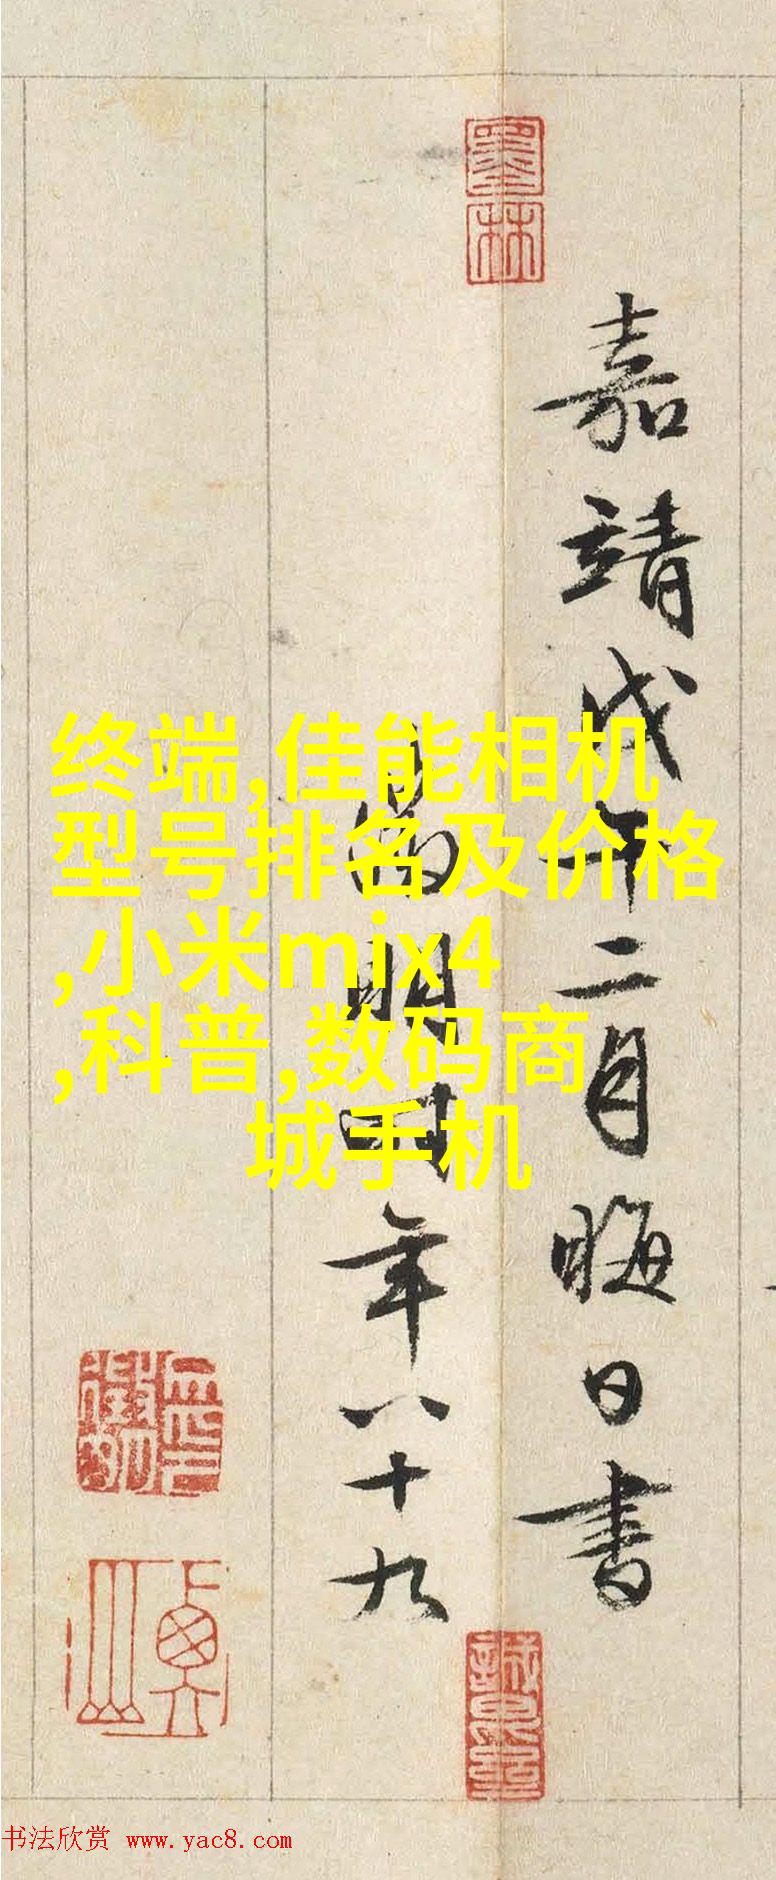 嘉靖戊午二月晦日書
徵明時年八十九
終端,佳能相机
型号排名及价格
,小米mix4
,科普,数码商
城手机
墨林
书法欣赏 www.yac8.com